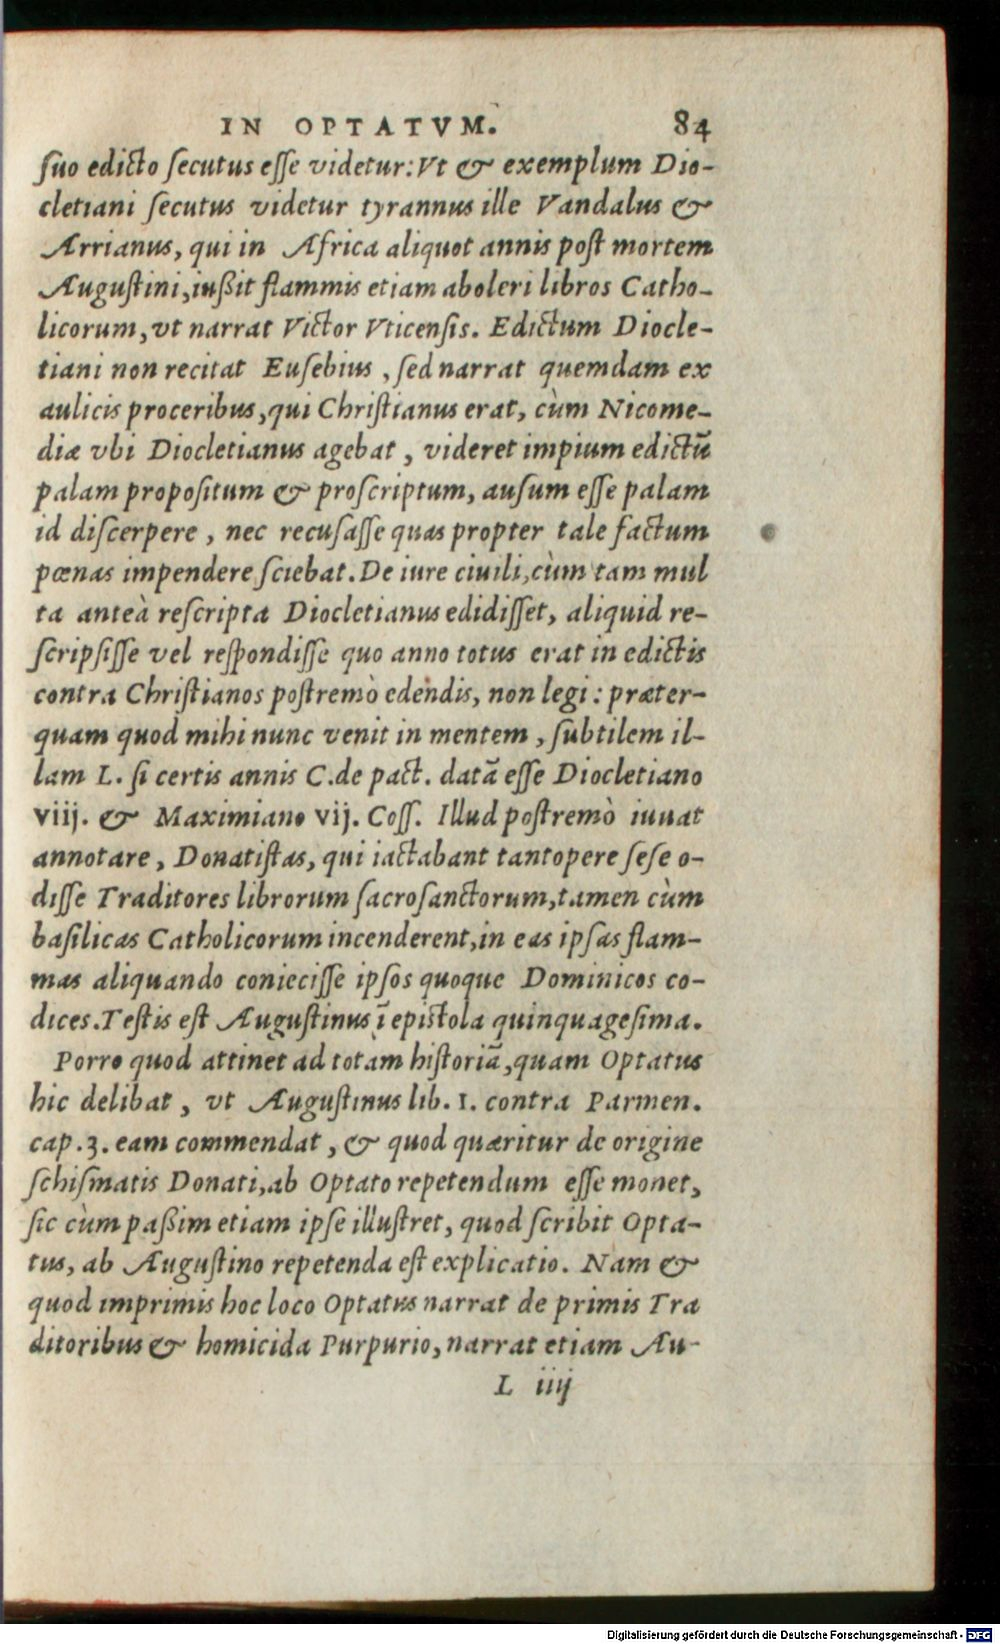 IN OPTATVM. 84
suo edicto secutus esse videtur: Vt & exemplum Dio-
cletiani secutus videtur tyrannus ille Vandalus &
Arrianus, qui in Africa aliquot annis post mortem
Augustini, iußit flammis etiam aboleri libros Catho-
licorum, vt narrat Victor Vticensis. Edictum Diocle-
tiani non recitat Eusebius, sed narrat quemdam ex
aulicis proceribus, qui Christianus erat, cùm Nicome-
diæ vbi Diocletianus agebat, videret impium edictū
palam propositum & proscriptum, ausum esse palam
id discerpere, nec recusasse quas propter tale factum
pœnas impendere sciebat. De iure ciuili, cùm tam mul
ta anteà rescripta Diocletianus edidisset, aliquid re-
scripsisse vel respondisse quo anno totus erat in edictis
contra Christianos postremò edendis, non legi: præter-
quam quod mihi nunc venit in mentem, subtilem il-
lam L. si certis annis C. de pact. datā esse Diocletiano
viij. & Maximiano vij. Coss. Illud postremò iuuat
annotare, Donatistas, qui iactabant tantopere sese o-
disse Traditores librorum sacrosanctorum, tamen cùm
basilicas Catholicorum incenderent, in eas ipsas flam-
mas aliquando coniecisse ipsos quoque Dominicos co-
dices. Testis est Augustinus ī epistola quinquagesima.
Porro quod attinet ad totam historiā, quam Optatus
hic delibat, vt Augustinus lib. 1. contra Parmen.
cap. 3. eam commendat, & quod quæritur de origine
schismatis Donati, ab Optato repetendum esse monet,
sic cùm paßim etiam ipse illustret, quod scribit Opta-
tus, ab Augustino repetenda est explicatio. Nam &
quod imprimis hoc loco Optatus narrat de primis Tra
ditoribus & homicida Purpurio, narrat etiam Au-
L iiij
Digitalisierung gefördert durch die Deutsche Forschungsgemeinschaft - DFG